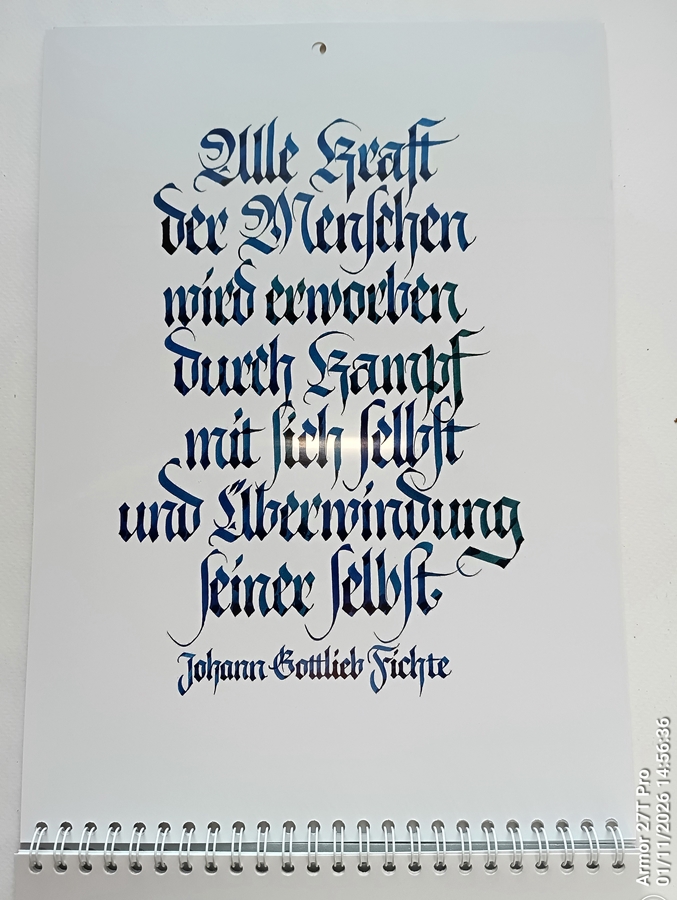 Alle Kraft
der Menschen
wird erworben
durch Kampf
mit sich selbst
und Überwindung
seiner selbst.
Johann Gottlieb Fichte
Armor 27T Pro
01/11/2026 14:56:36